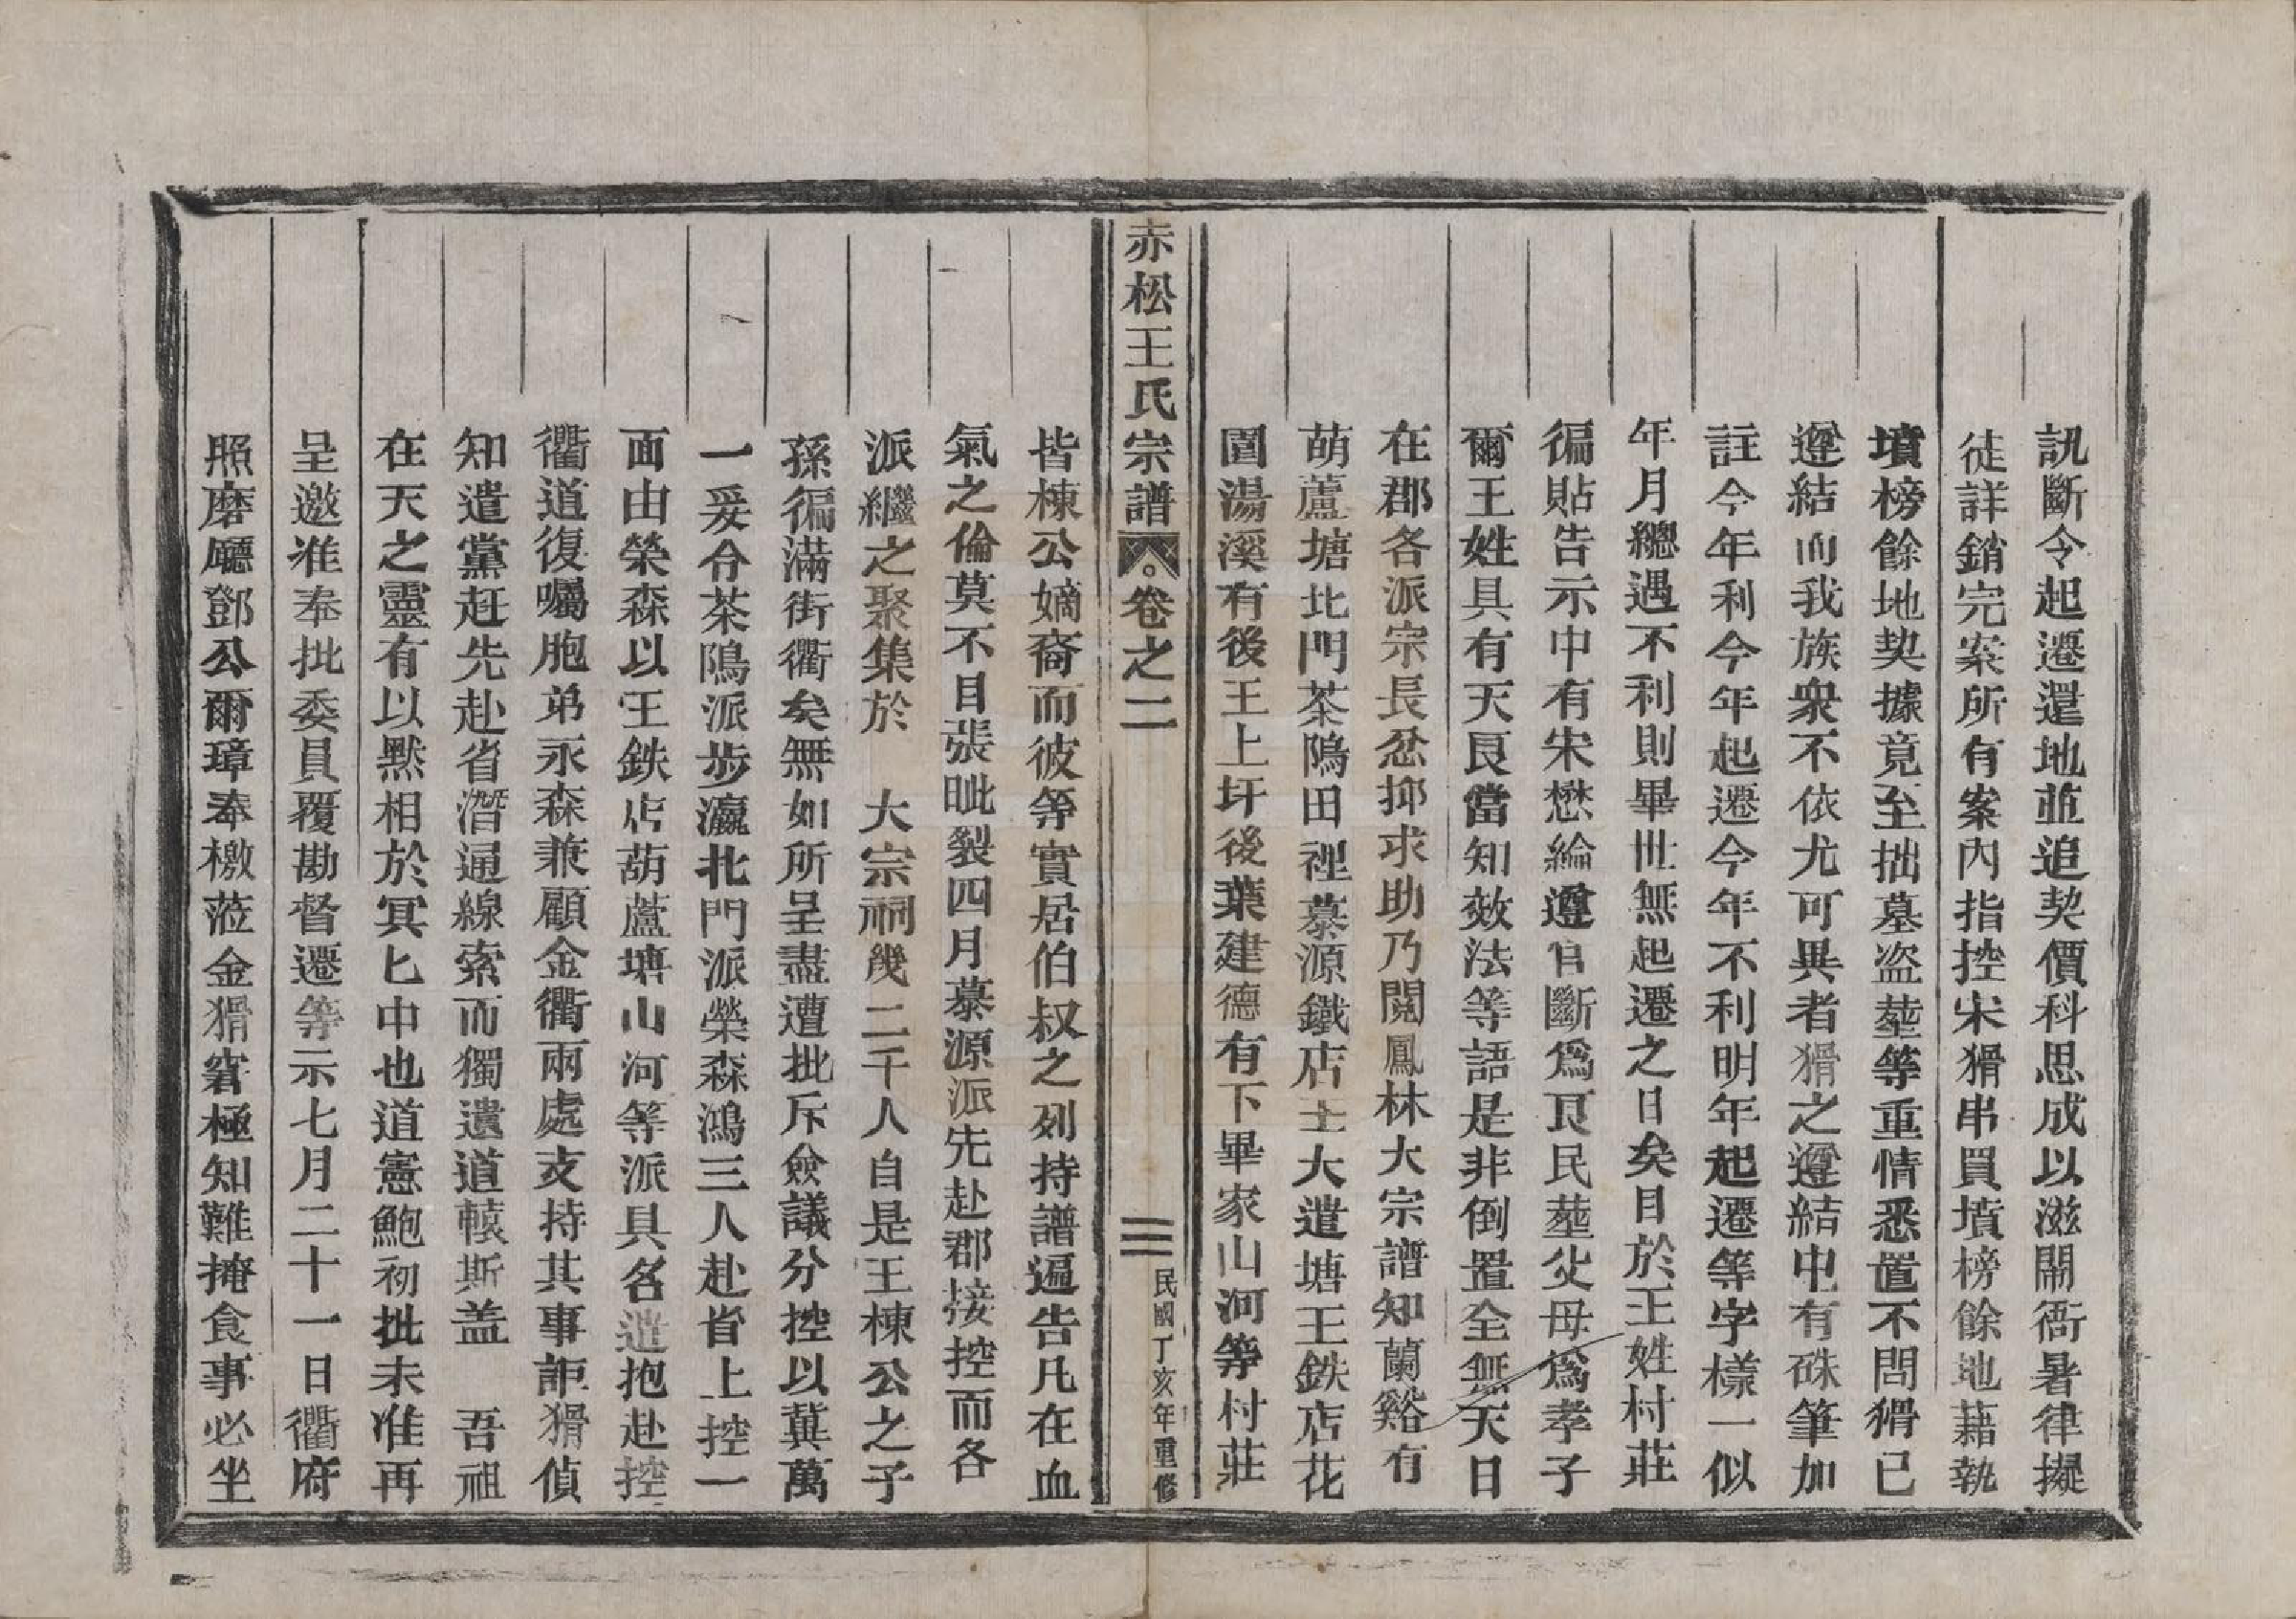 訊斷令起遷還地並追契價科思成以滋閙衙署律擬
徒詳銷完案所有案內指控宋猾串買墳榜餘地藉執
墳榜餘地契據竟至拙墓盜塟等重情悉置不問猾已
遵結而我族衆不依尤可異者猾之遵結中有硃筆加
註今年利今年起遷今年不利明年起遷等字樣一似
年月總遇不利則畢世無起遷之日矣目於王姓村莊
徧貼告示中有宋懋綸遵官斷爲艮民塟父母爲孝子
爾王姓具有天艮當知效法等語是非倒置全無天日
在郡各派宗長忿抑求助乃閱鳳林大宗譜知蘭谿有
葫蘆塘北門茶隝田裡慕源鐵店王大遣塘王鉄店花
園湯溪有後王上圩後葉建德有下畢家山河等村莊
赤松王氏宗譜 卷之二 三 民國丁亥年重修
皆棟公嫡裔而彼等實居伯叔之列持譜遍告凡在血
氣之倫莫不目張眦裂四月慕源派先赴郡接控而各
派繼之聚集於 大宗祠幾二千人自是王棟公之子
孫徧滿街衢矣無如所呈盡遭批斥僉議分控以冀萬
一爰合茶隝派步瀛北門派榮森鴻三人赴省上控一
面由榮森以王鉄店葫蘆塘山河等派具名遣抱赴控
衢道復囑胞弟永森兼顧金衢兩處支持其事詎猾偵
知遣黨赶先赴省潛通線索而獨遺道轅斯盖 吾祖
在天之靈有以默相於冥匕中也道憲鮑初批未准再
呈邀准奉批委員覆勘督遷等示七月二十一日衢府
照磨廳鄧公爾璋奉檄蒞金猾窘極知難掩食事必坐